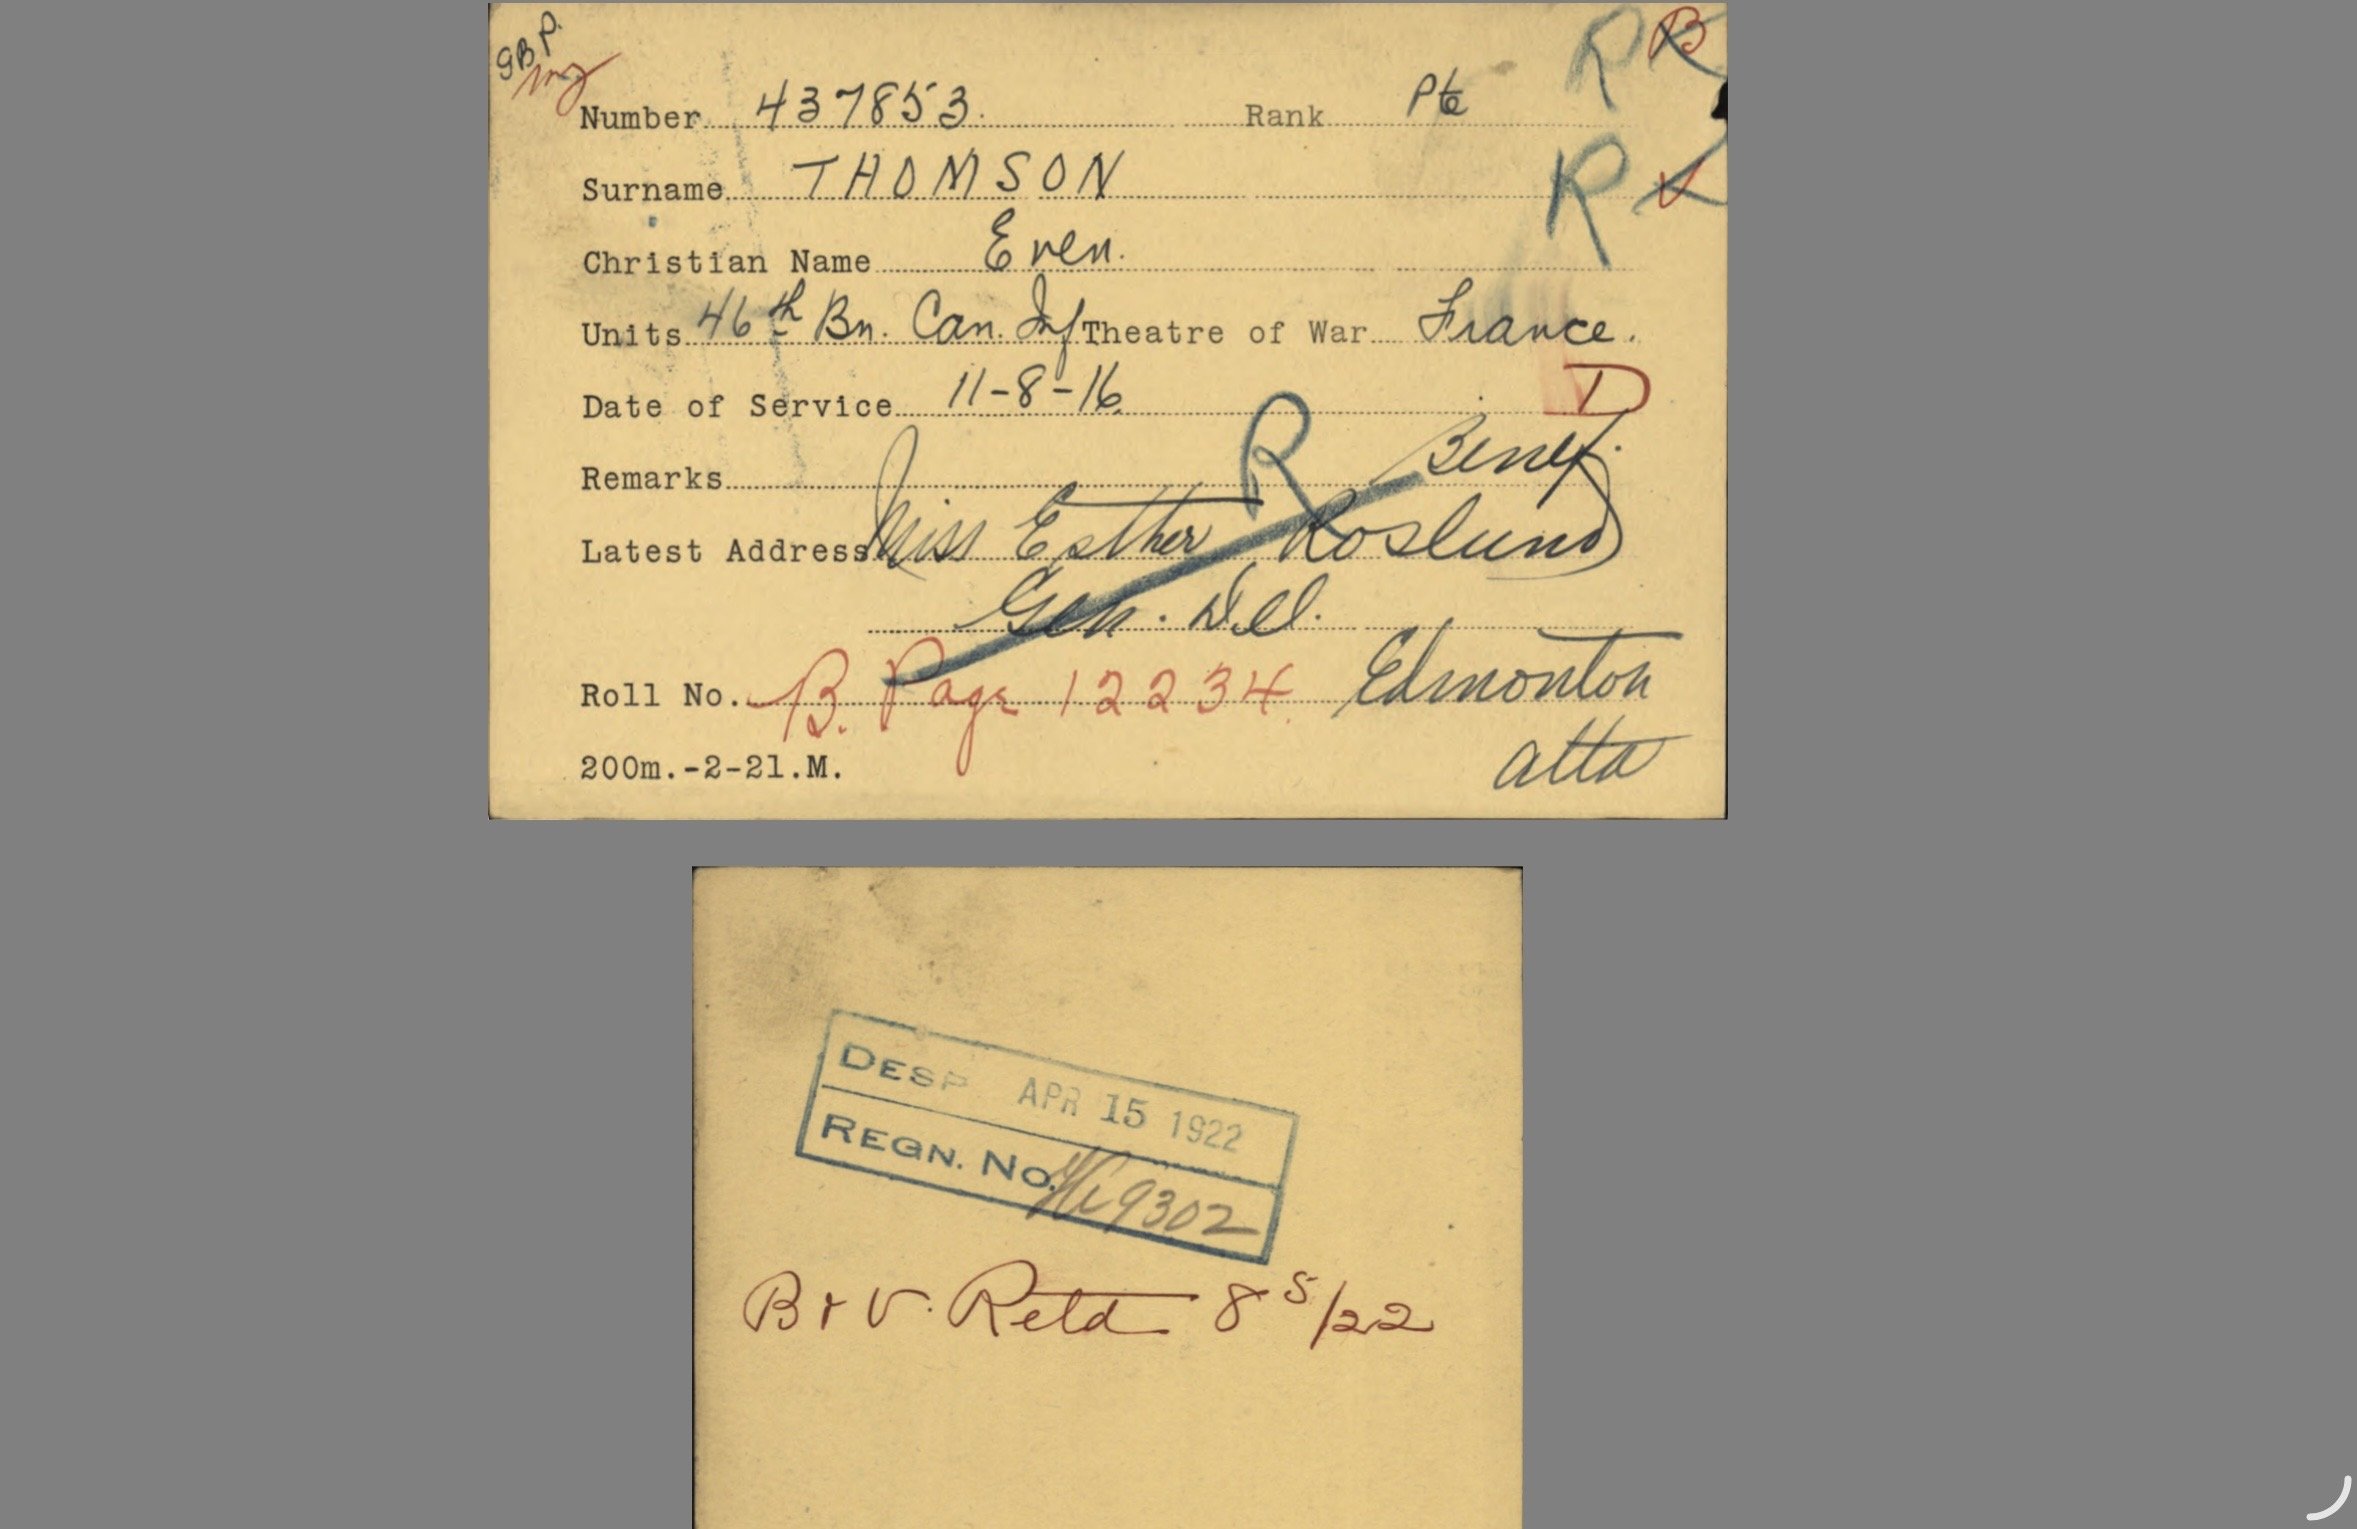 GBP.
R B
Number 437853. Rank Pte
R V
Surname THOMSON
Christian Name Even.
Units 46th Bn. Can. Inf Theatre of War France.
Date of Service 11-8-16.
D
Remarks R Benef.
Latest Address Miss Esther Roslund
Gen. Del.
Roll No. B. Page 12234. Edmonton
alta
200m.-2-21.M.
DESP APR 15 1922
REGN. No. 9302
B & V. Retd 8 5/22